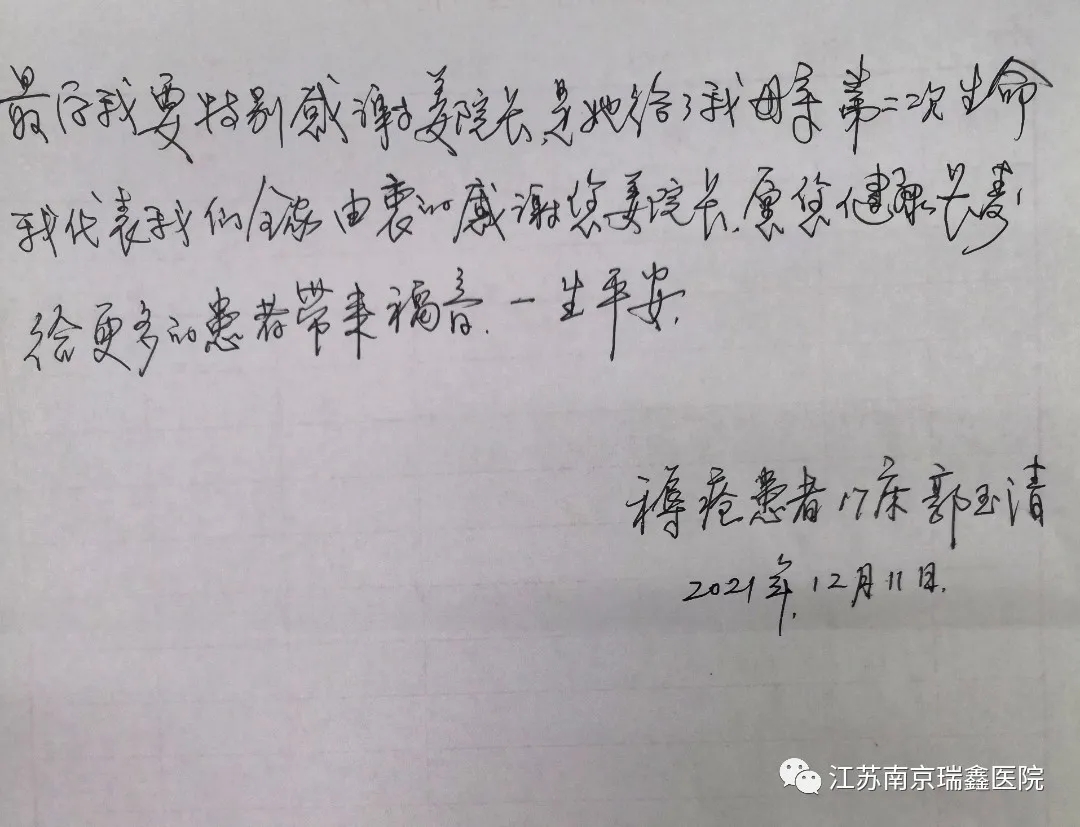 最后我要特别感谢姜院长,是她给了我母亲第二次生命
我代表我们全家由衷的感谢您姜院长.愿您健康长寿,
给更多的患者带来福音.一生平安.
褥疮患者17床郭玉清
2021年.12月11日.
江苏南京瑞鑫医院